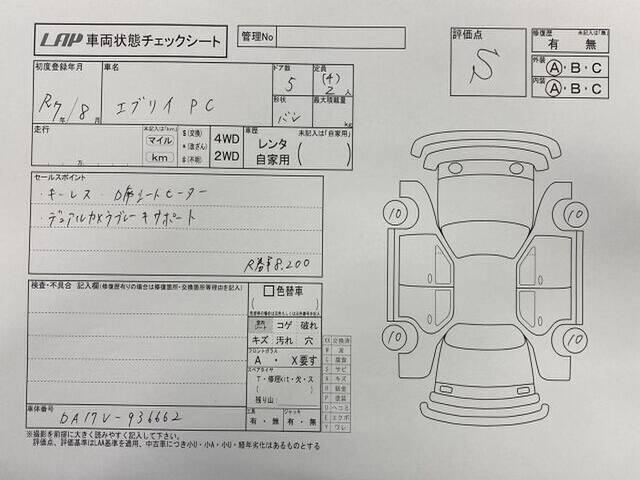 LAP 車両状態チェックシート
管理No
評価点
S
修復歴 未記入は「無」
有 無
外装 A・B・C
内装 A・B・C
初度登録年月
R7年/8月
車名
エブリイ PC
ドア数
5
定員
(4)
2人
形状
バン
最大積載量
kg
走行
未記入は「km」
マイル
km
万
$(交換)
*(改ざん)
#(不明)
4WD
2WD
車歴 未記入は「自家用」
レンタ
自家用 ( )
セールスポイント
・キーレス ・D席シートヒーター
・デュアルカメラブレーキサポート
R番車8,200
検査・不具合 記入欄(修復歴有りの場合は修復箇所・交換箇所等理由を記入)
色替車
( )
室内
シート
コゲ 破れ
キズ 汚れ 穴
フロントガラス
A ・ X要す
スペアタイヤ
T・修理kit・欠・ス
( )
残り山:
工具
有・無
ジャッキ
有・無
XX 交換済
W 波
C 腐食
S サビ
A キズ
P 塗装
U ヘコミ
E エクボ
Y ワレ
10
10
10
10
車体番号
DA17V-936662
※撮影を前提に大きく読みやすく記入して下さい。
評価点、評価基準はLAA基準を適用、中古車につき小U・小A・小U・経年劣化はあるものとする